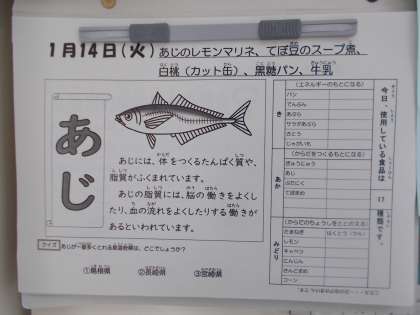 1月14日(火) あじのレモンマリネ、てぼ豆のスープ煮、
白桃(カット缶)、黒糖パン、牛乳
あじ
あじには、体をつくるたんぱく質や、
脂質がふくまれています。
あじの脂質には、脳の働きをよくし
たり、血の流れをよくしたりする働きが
あるといわれています。
クイズ あじが一番多くとれる都道府県は、どこでしょうか?
①島根県 ②長崎県 ③宮崎県
今日、使用している食品は
17
種類です。
き
(エネルギーのもとになる)
パン
でんぷん
あぶら
サラダあぶら
さとう
じゃがいも
あか
(からだをつくるもとになる)
ぎゅうにゅう
あじ
ぶたにく
てぼまめ
みどり
(からだのちょうしをととのえる)
たまねぎ はくとう(かん)
レモン
キャベツ
にんじん
さんどまめ
コーン